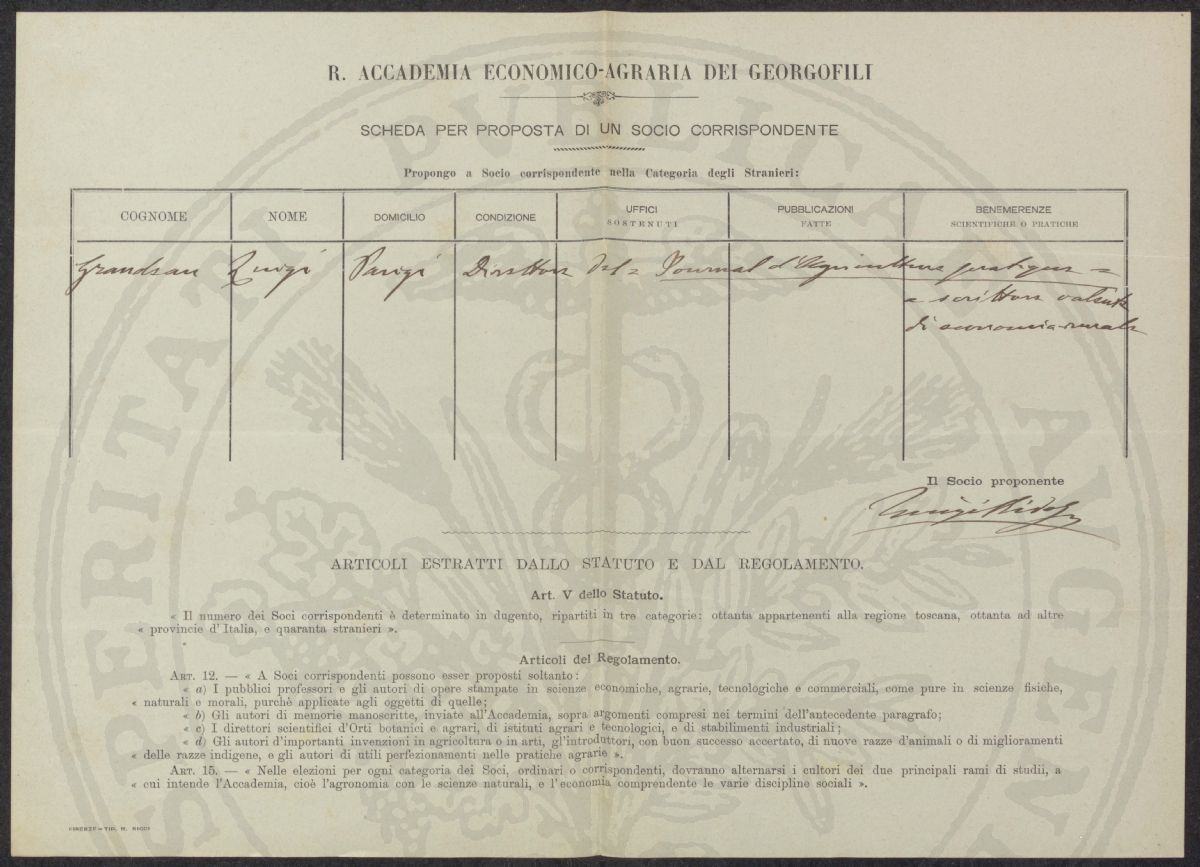 R. ACCADEMIA ECONOMICO-AGRARIA DEI GEORGOFILI
SCHEDA PER PROPOSTA DI UN SOCIO CORRISPONDENTE
Propongo a Socio corrispondente nella Categoria degli Stranieri:
COGNOME NOME DOMICILIO CONDIZIONE UFFICI SOSTENUTI PUBBLICAZIONI FATTE BENEMERENZE SCIENTIFICHE O PRATICHE
Grandeau Luigi Parigi Direttore del = Journal d'Agriculture pratique =
e scrittore valente
di economia rurale
Il Socio proponente
Luigi Ridolfi
ARTICOLI ESTRATTI DALLO STATUTO E DAL REGOLAMENTO.
Art. V dello Statuto.
« Il numero dei Soci corrispondenti è determinato in dugento, ripartiti in tre categorie: ottanta appartenenti alla regione toscana, ottanta ad altre
« provincie d'Italia, e quaranta stranieri ».
Articoli del Regolamento.
ART. 12. — « A Soci corrispondenti possono esser proposti soltanto:
« a) I pubblici professori e gli autori di opere stampate in scienze economiche, agrarie, tecnologiche e commerciali, come pure in scienze fisiche,
« naturali e morali, purchè applicate agli oggetti di quelle;
« b) Gli autori di memorie manoscritte, inviate all'Accademia, sopra argomenti compresi nei termini dell'antecedente paragrafo;
« c) I direttori scientifici d'Orti botanici e agrari, di istituti agrari e tecnologici, e di stabilimenti industriali;
« d) Gli autori d'importanti invenzioni in agricoltura o in arti, gl'introduttori, con buon successo accertato, di nuove razze d'animali o di miglioramenti
« delle razze indigene, e gli autori di utili perfezionamenti nelle pratiche agrarie ».
ART. 15. — « Nelle elezioni per ogni categoria dei Soci, ordinari o corrispondenti, dovranno alternarsi i cultori dei due principali rami di studii, a
« cui intende l'Accademia, cioè l'agronomia con le scienze naturali, e l'economia comprendente le varie discipline sociali ».
FIRENZE — TIP. M. RICCI